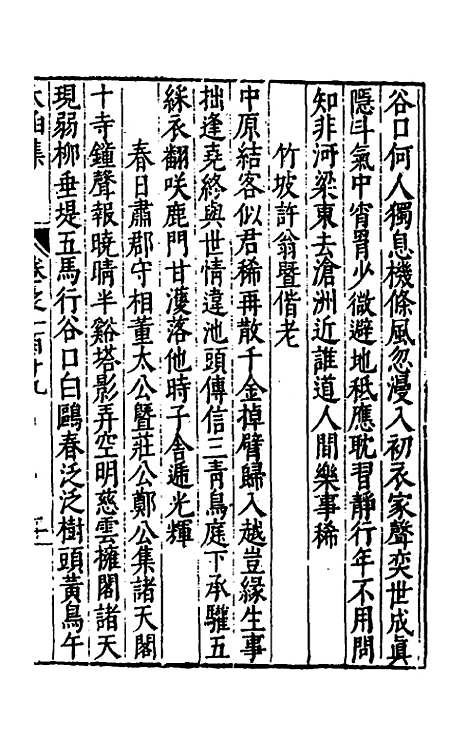 谷口何人獨息機條風忽漫入初衣家聲奕世成眞
隱斗氣中宵胃少微避地秪應耽習靜行年不用問
知非河梁東去滄洲近誰道人間樂事稀
竹坡許翁暨偕老
中原結客似君稀再散千金掉臂歸入越豈緣生事
拙逢堯終與世情違池頭傳信三青鳥庭下承驩五
綵衣翻咲鹿門甘濩落他時子舍遞光輝
春日肅郡守相董太公暨莊公鄭公集諸天閣
十寺鐘聲報曉晴半谿塔影弄空明慈雲擁閣諸天
現弱柳垂堤五馬行谷口白鷗春泛泛樹頭黃鳥午
太函集
卷之一百十九